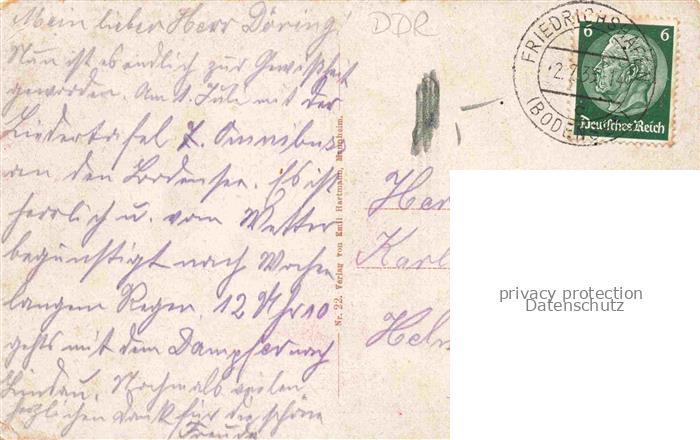 Mein lieber Herr Döring!
Nun ist es endlich zur Gewißheit
geworden. Am 1. Juli mit der
Liedertafel z. Omnibus
an den Bodensee. Es ist
herrlich u. vom Wetter
begünstigt nach Wochen
langem Regen. 12 Uhr 10
gehts mit dem Dampfer nach
Lindau. Nochmals vielen
herzlichen Dank für die schöne
Freude
DDR
Nr. 22. Verlag von Emil Hartmann, Mannheim.
FRIEDRICHSHAFEN
(BODENSEE)
6 6
Deutsches Reich
Her
Karl
Helm
privacy protection
Datenschutz